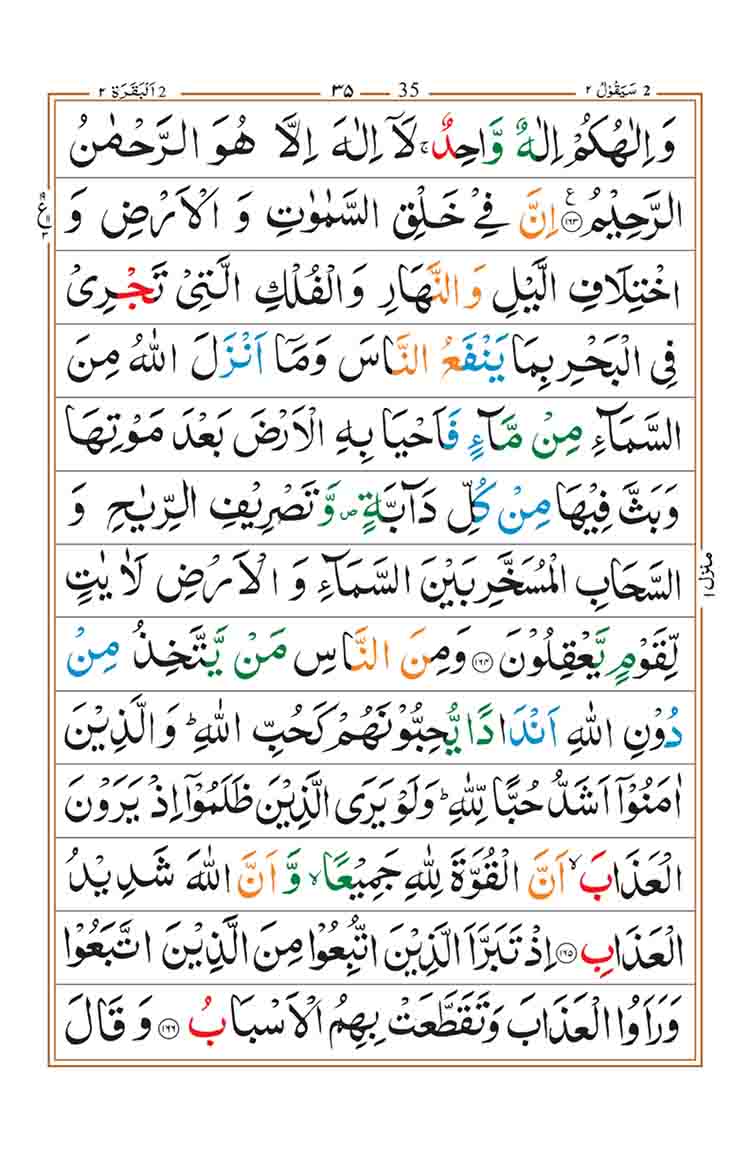 2 سَيَقُوْلُ ٢ 35 ٣٥ 2 اَلْبَقَرَة ٢
وَاِلٰهُكُمْ اِلٰهٌ وَّاحِدٌ ۚ لَاۤ اِلٰهَ اِلَّا هُوَ الرَّحْمٰنُ
الرَّحِيْمُ ﴿۱۶۳﴾ ع اِنَّ فِيْ خَلْقِ السَّمٰوٰتِ وَ الْاَرْضِ وَ
اخْتِلَافِ الَّيْلِ وَالنَّهَارِ وَالْفُلْكِ الَّتِيْ تَجْرِيْ
فِي الْبَحْرِ بِمَا يَنْفَعُ النَّاسَ وَمَاۤ اَنْزَلَ اللّٰهُ مِنَ
السَّمَآءِ مِنْ مَّآءٍ فَاَحْيَا بِهِ الْاَرْضَ بَعْدَ مَوْتِهَا
وَبَثَّ فِيْهَا مِنْ كُلِّ دَآبَّةٍ ۪ وَّتَصْرِيْفِ الرِّيٰحِ وَ
السَّحَابِ الْمُسَخَّرِ بَيْنَ السَّمَآءِ وَ الْاَرْضِ لَاٰيٰتٍ
لِّقَوْمٍ يَّعْقِلُوْنَ ﴿۱۶۴﴾ وَمِنَ النَّاسِ مَنْ يَّتَّخِذُ مِنْ
دُوْنِ اللّٰهِ اَنْدَادًا يُّحِبُّوْنَهُمْ كَحُبِّ اللّٰهِ ؕ وَالَّذِيْنَ
اٰمَنُوْۤا اَشَدُّ حُبًّا لِّلّٰهِ ؕ وَلَوْ يَرَى الَّذِيْنَ ظَلَمُوْۤا اِذْ يَرَوْنَ
الْعَذَابَ ۙ اَنَّ الْقُوَّةَ لِلّٰهِ جَمِيْعًا ۙ وَّ اَنَّ اللّٰهَ شَدِيْدُ
الْعَذَابِ ﴿۱۶۵﴾ اِذْ تَبَرَّاَ الَّذِيْنَ اتُّبِعُوْا مِنَ الَّذِيْنَ اتَّبَعُوْا
وَرَاَوُا الْعَذَابَ وَتَقَطَّعَتْ بِهِمُ الْاَسْبَابُ ﴿۱۶۶﴾ وَ قَالَ
منزل ۱